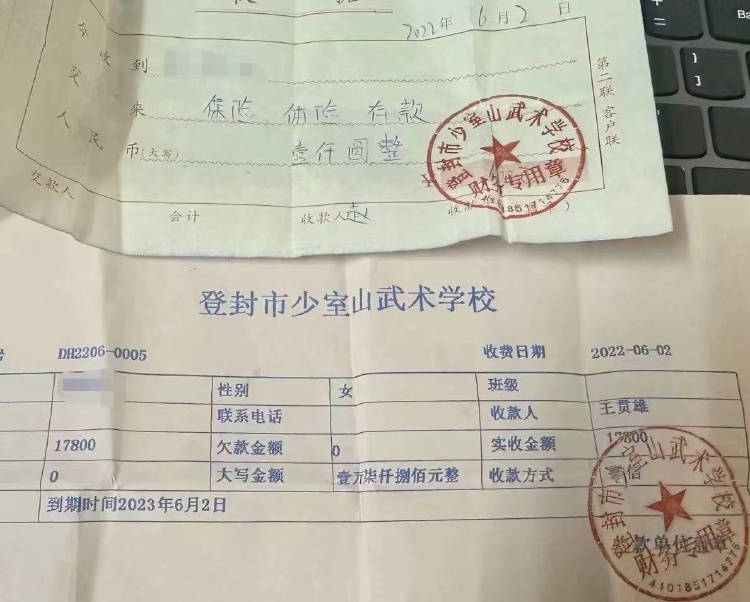 2022年6月2日
今收到
交来 保险 体险 存款
人民币(大写) 壹仟圆整
第二联 客户联
登封市少室山武术学校
财务专用章
交款人 会计 收款人
登封市少室山武术学校
号 DH2206-0005 收费日期 2022-06-02
性别 女 班级
联系电话 收款人 王贯雄
17800 欠款金额 0 实收金额 17800
0 大写金额 壹万柒仟捌佰元整 收款方式 微信
到期时间2023年6月2日
款单位
登封市少室山武术学校
财务专用章
4101851714776